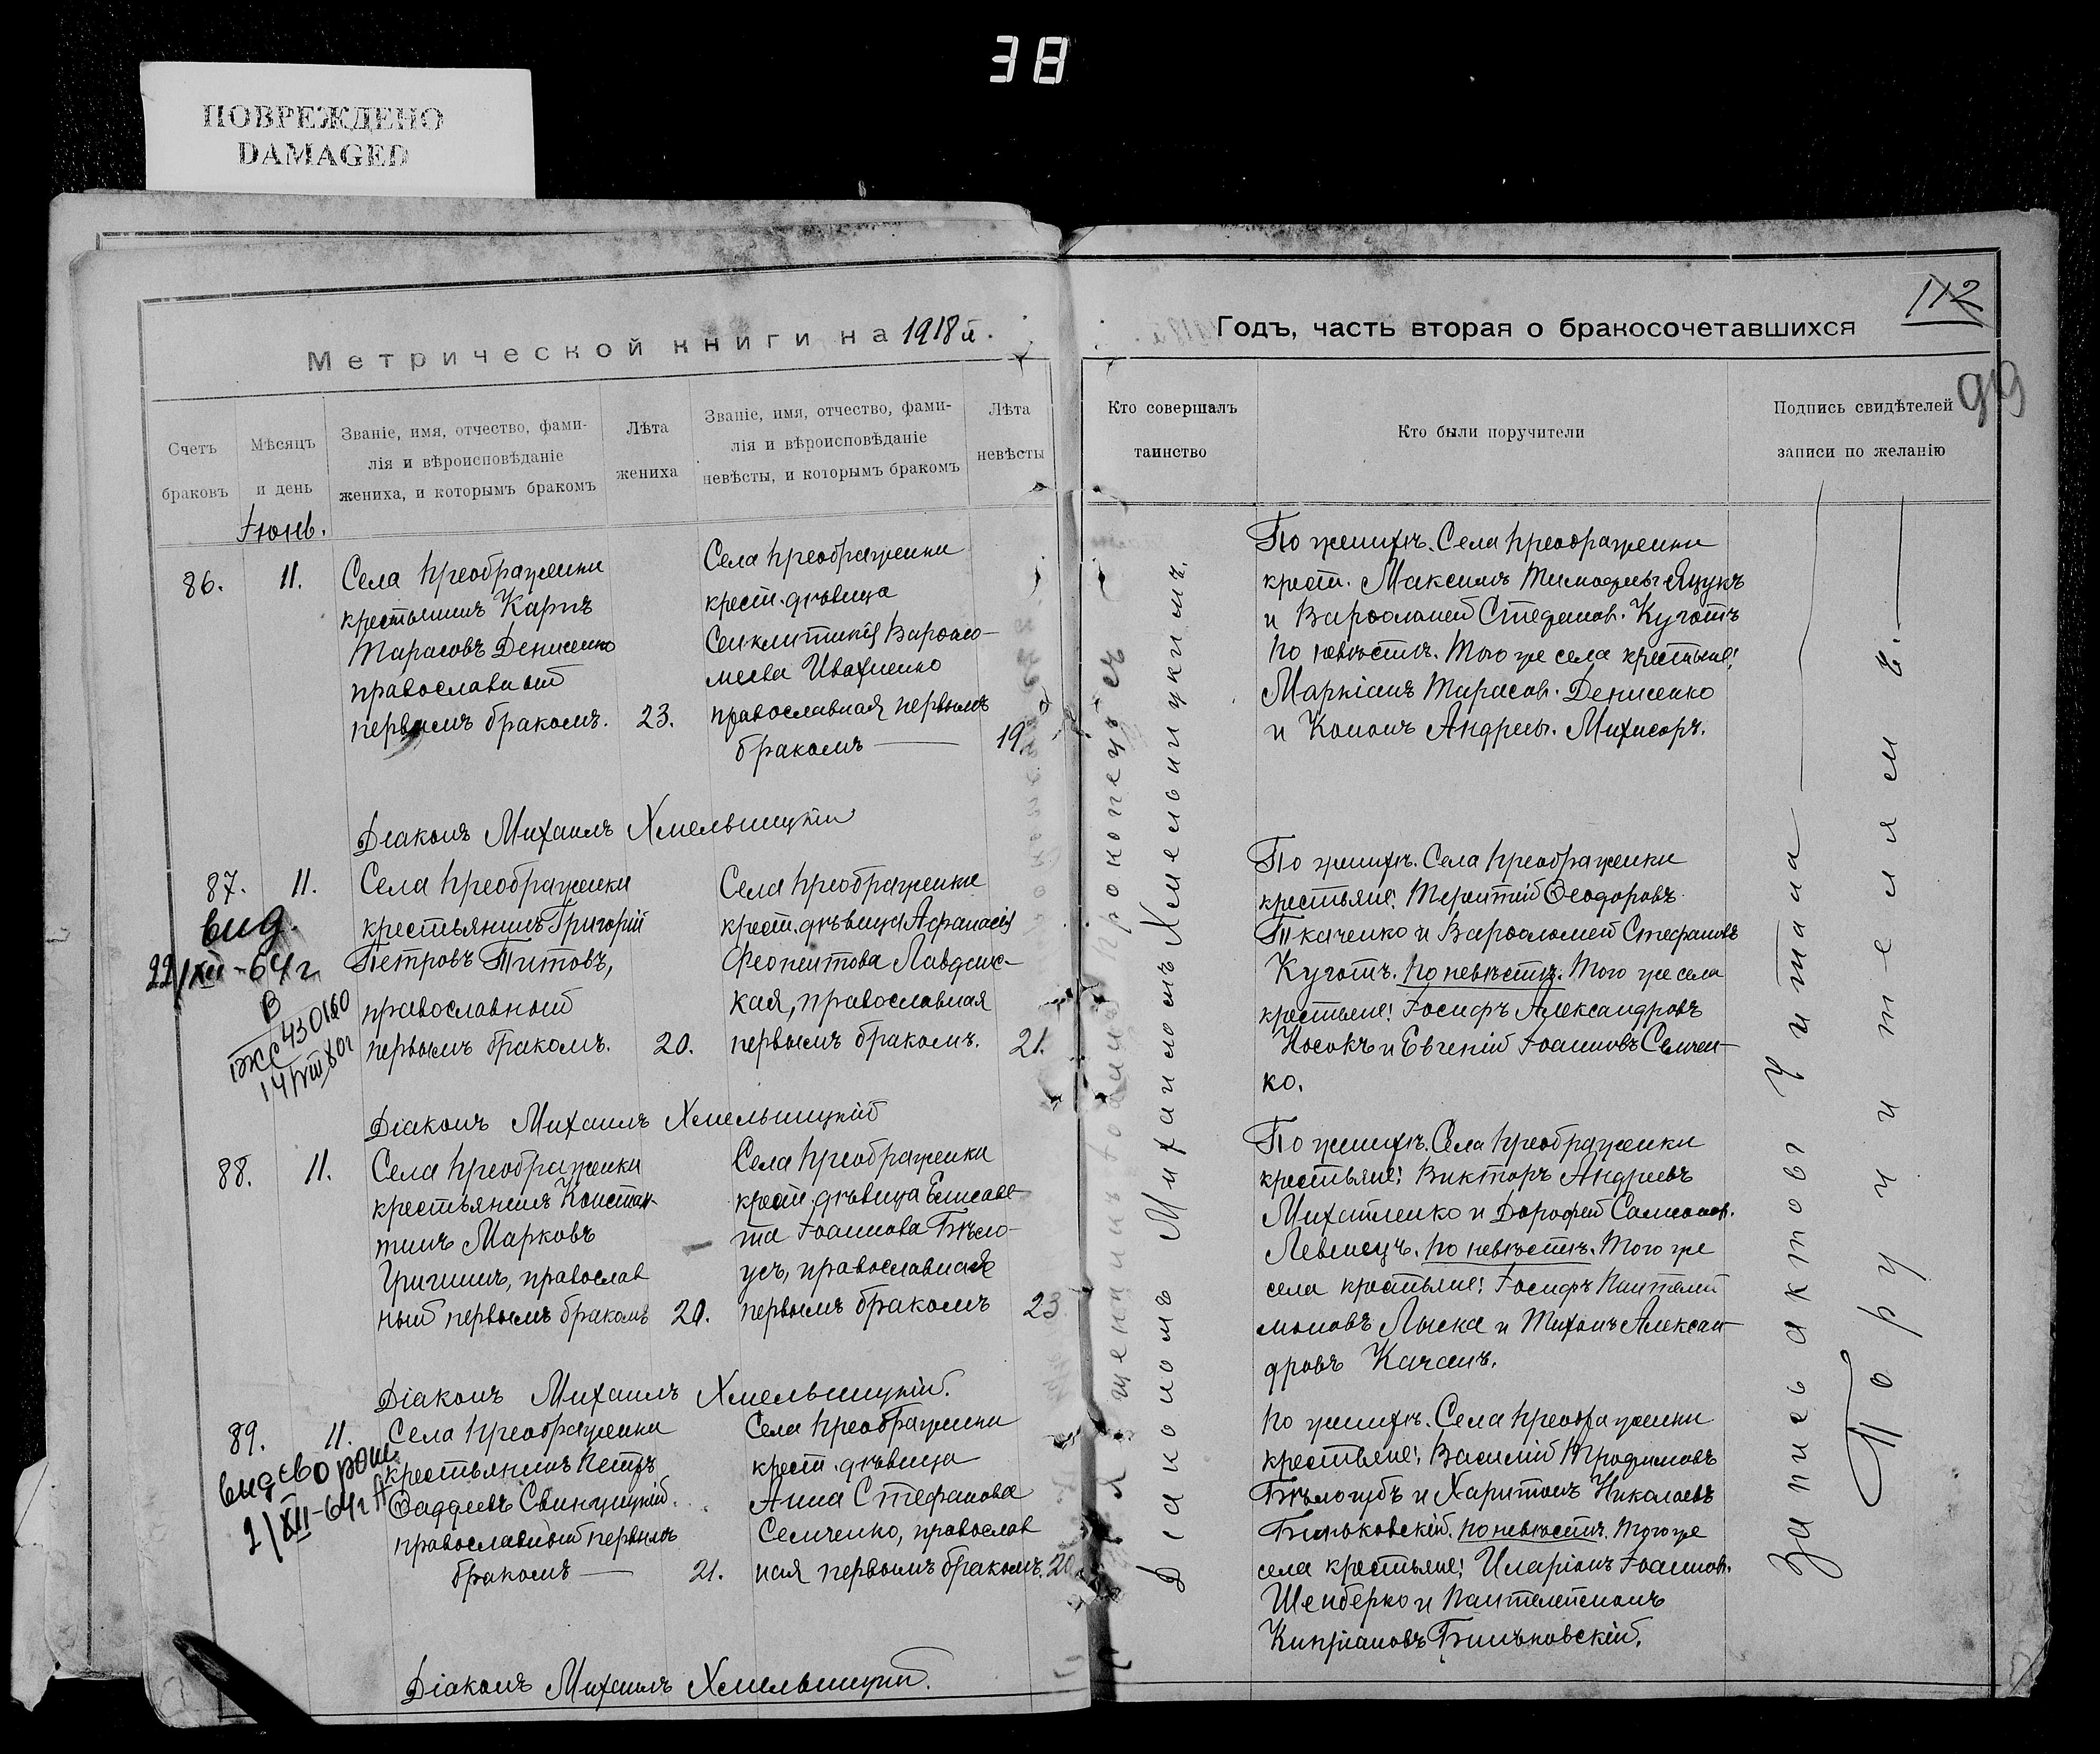 38
ПОВРЕЖДЕНО
DAMAGED
Метрической книги на 1918 й.
Счетъ
браковъ
Мѣсяцъ
и день
Званіе, имя, отчество, фами-
лія и вѣроисповѣданіе
жениха, и которымъ бракомъ
Лѣта
жениха
Званіе, имя, отчество, фами-
лія и вѣроисповѣданіе
невѣсты, и которымъ бракомъ
Лѣта
невѣсты
Іюнь.
86.
11.
Села Преображенки
крестьянинъ Карпъ
Тарасовъ Денисенко
православный
первымъ бракомъ.
23.
Села Преображенки
крест. дѣвица
Синклитикія Варфоло-
меева Ивахненко
православная первымъ
бракомъ
19.
Діаконъ Михаилъ Хмельницкій
87.
11.
вид.
22/XII-64г
В
430160
14/VIII 80г
Села Преображенки
крестьянинъ Григорій
Петровъ Титовъ,
православный
первымъ бракомъ.
20.
Села Преображенки
крест. дѣвица Афанасія
Лавдин-
кая, православная
первымъ бракомъ.
21.
Діаконъ Михаилъ Хмельницкій
88.
11.
Села Преображенки
крестьянинъ Констан-
тинъ Марковъ
православ
ный первымъ бракомъ
20.
Села Преображенки
крест. дѣвица Елисаве-
та Іоаннова Бѣло-
усъ, православная
первымъ бракомъ
23
Діаконъ Михаилъ Хмельницкій.
89.
11.
вид
2/XII-64г
Села Преображенки
крестьянинъ Петръ
Ѳаддеевъ Свинцицкій.
православный первымъ
бракомъ
21.
Села Преображенки
крест. дѣвица
Анна Стефанова
Семченко, православ
ная первымъ бракомъ.
20
Діаконъ Михаилъ Хмельницкій.
112
99
Годъ, часть вторая о бракосочетавшихся
Кто совершалъ
таинство
Кто были поручители
Подпись свидѣтелей
записи по желанію
Діакономъ Михаиломъ Хмельницкимъ.
По женихѣ. Села Преображенки
крест. Максимъ Тимофеевъ Яцукъ
и Варфоломей Стефанов. Куготъ
По невѣстѣ. Того же села крестьяне:
Маркіанъ Тарасов. Денисенко
и Кононъ Андреев.
По женихѣ. Села Преображенки
крестьяне: Терентій Ѳеодоровъ
Ткаченко и Варфоломей Стефановъ
Куготъ. По невѣстѣ. Того же села
крестьяне: Іосифъ Александровъ
Носокъ и Евгеній Іоанновъ Семчен-
ко.
По женихѣ. Села Преображенки
крестьяне: Викторъ Андреевъ
Михайленко и Дорофей Самсонов.
По невѣстѣ. Того же
села крестьяне: Іосифъ Пантелей
моновъ Лыска и Тихонъ Алексан-
дровъ Качанъ.
По женихѣ. Села Преображенки
крестьяне: Василій Трофимовъ
Бѣлогубъ и Харитонъ Николаевъ
Биньковскій. По невѣстѣ. Того же
села крестьяне: Иларіонъ Іоаннов.
Шенберко и Пантелеймонъ
Кипріановъ Биньковскій.
Запись актовъ читана
Поручителемъ.